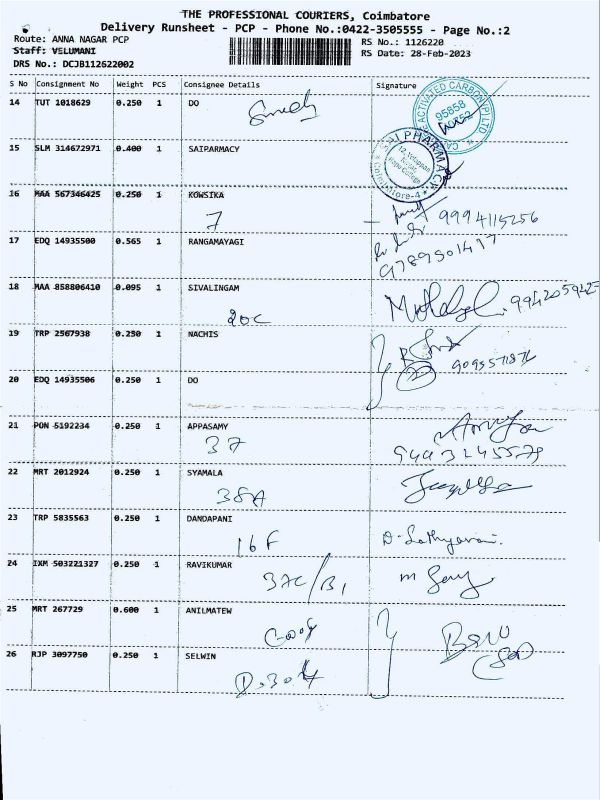 THE PROFESSIONAL COURIERS, Coimbatore
Delivery Runsheet - PCP - Phone No.:0422-3505555 - Page No.:2
Route: ANNA NAGAR PCP
RS No.: 1126220
Staff: VELUMANI
RS Date: 28-Feb-2023
DRS No.: DCJB112622002
S No Consignment No Weight PCS Consignee Details Signature
14 TUT 1018629 0.250 1 DO
ACTIVATED CARBON (P) LTD
95858
15 SLM 314672971 0.400 1 SAIPARMACY
SAI PHARMACY
Coimbatore-4
16 MAA 567346425 0.250 1 KOWSIKA
7
9994115256
17 EDQ 14935500 0.565 1 RANGAMAYAGI
9789501417
18 MAA 858806410 0.095 1 SIVALINGAM
20C
994205942
19 TRP 2567938 0.250 1 NACHIS
20 EDQ 14935506 0.250 1 DO
21 PON 5192234 0.250 1 APPASAMY
37
9443245579
22 MRT 2012924 0.250 1 SYAMALA
38A
23 TRP 5835563 0.250 1 DANDAPANI
16F
D. Sathyavani.
24 IXM 503221327 0.250 1 RAVIKUMAR
37C/B1
25 MRT 267729 0.600 1 ANILMATEW
26 RJP 3097750 0.250 1 SELWIN